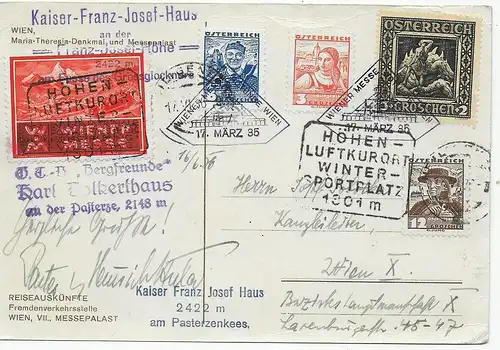 Kaiser-Franz-Josef-Haus
an der
Franz-Josef-Höhe
2422 m
am Fusse des Grossglockners
WIEN,
Maria-Theresia-Denkmal, und Messepalast
HÖHEN-
LUFTKURORT
WIENER
MESSE
ÖSTERREICH
ÖSTERREICH
ÖSTERREICH
GROSCHEN 2
WIENER MESSE
17. MÄRZ 35
WIEN
17. MÄRZ 35
HÖHEN-
LUFTKURORT
WINTER-
SPORTPLATZ
1301 m
ÖSTERREICH
12 GROSCHEN
16/6.36
"Bergfreunde"
Karl Volkerthaus
an der Pasterze, 2148 m
Herzliche Grüße!
Herrn
Kanzleileiter,
Wien X.
Bezirkshauptmannschaft X
Laxenburgerstr. 45-47
REISEAUSKÜNFTE
Fremdenverkehrsstelle
WIEN, VII., MESSEPALAST
Kaiser Franz Josef Haus
2422 m
am Pasterzenkees.